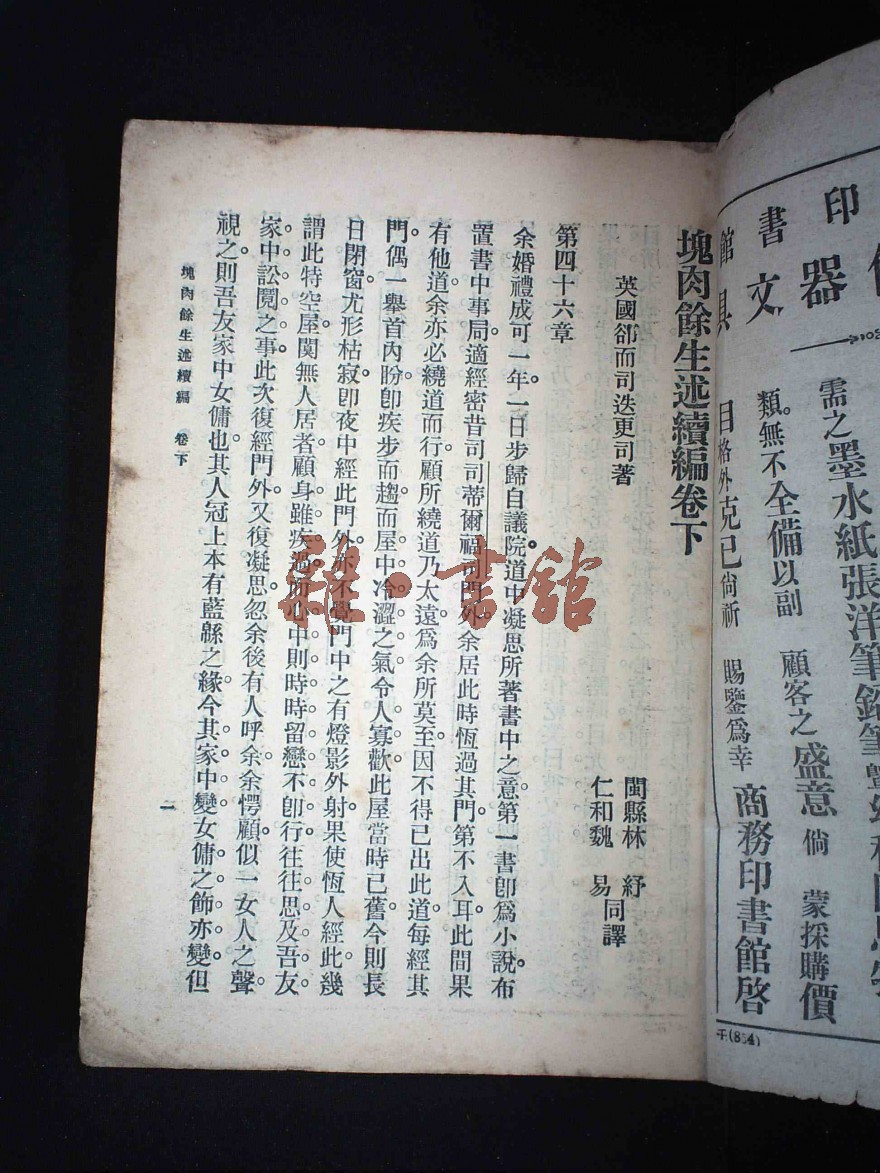 塊肉餘生述續編卷下
英國卻而司迭更司著
閩縣林　紓
仁和魏　易
同譯
第四十六章
余婚禮成可一年。一日步歸自議院道中凝思所著書中之意第一書卽爲小說布
置書中事局適經密昔司司蒂爾福司門外余居此時恆過其門第不入耳此間果
有他道余亦必繞道而行顧所繞道乃太遠爲余所莫至因不得已出此道每經其
門。偶一舉首內盼卽疾步而趨而屋中冷澀之氣令人寡歡此屋當時已舊今則長
日閉窗尤形枯寂卽夜中經此門外亦不覺門中之有燈影外射果使恆人經此幾
謂此特空屋闃無人居者顧身雖疾過而心中則時時留戀不卽行往往思及吾友
家中訟鬩之事此次復經門外又復凝思忽余後有人呼余余愕顧似一女人之聲
視之則吾友家中女傭也其人冠上本有藍緜之緣今其家中變女傭之飾亦變但
塊肉餘生述續編　卷下
一
雜·書舘
印
書
館
器
文
具
需之墨水紙張洋筆鉛筆
類。無不全備以副　顧客之盛意　倘　蒙採購價
目格外克已尙祈　賜鑒爲幸　商務印書館啓
千(854)